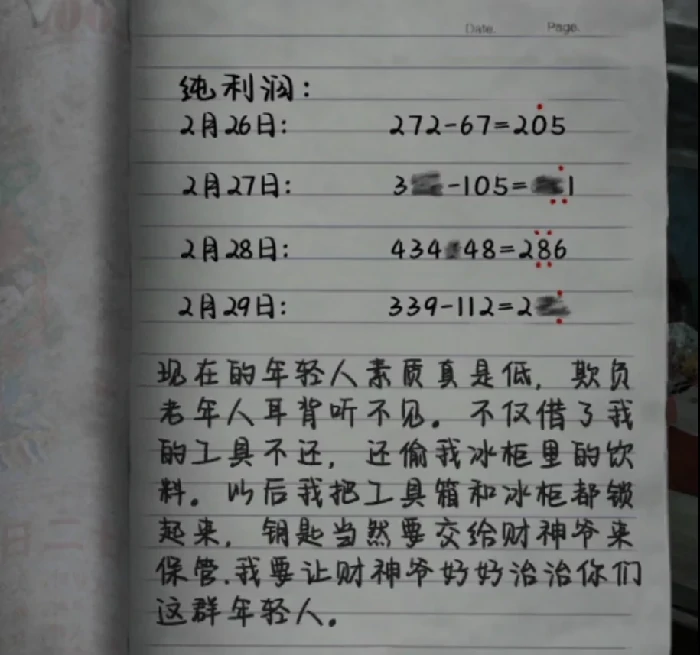 Date. Page.
纯利润:
2月26日: 272-67=205
2月27日: 3 -105= 1
2月28日: 434 48=286
2月29日: 339-112=2
现在的年轻人素质真是低,欺负
老年人耳背听不见。不仅借了我
的工具不还,还偷我冰柜里的饮
料。以后我把工具箱和冰柜都锁
起来,钥匙当然要交给财神爷来
保管.我要让财神爷好好治治你们
这群年轻人。